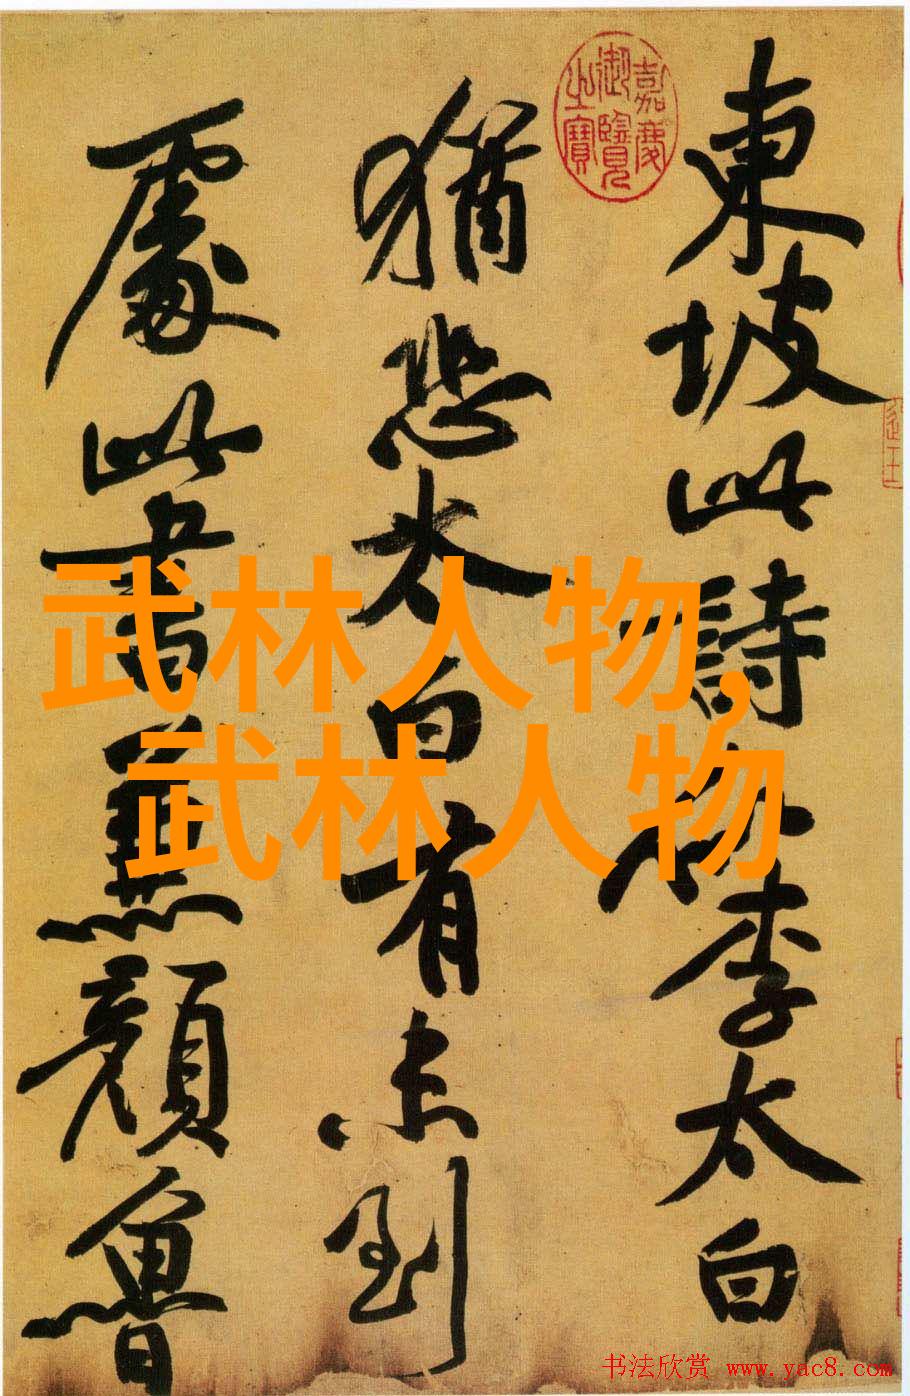 東坡此詩似李太白
嘉慶
御覽
之寶
猶恐太白有未到
處此書兼顏魯
武林人物,
武林人物
书法欣赏 www.yac8.com